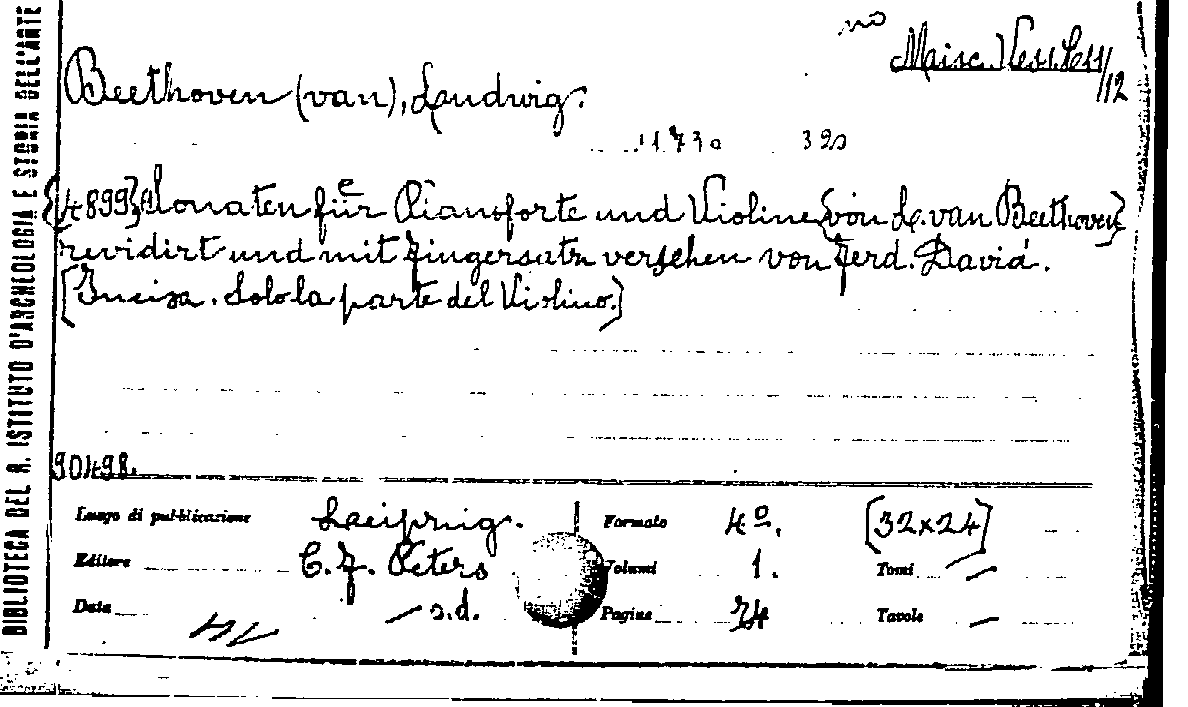 BIBLIOTECA DEL R. ISTITUTO D'ARCHEOLOGIA E STORIA DELL'ARTE
no
Misc. Vess. 
/12
Beethoven (van), Ludwig.
11730 320
{4899} Sonaten für Pianoforte und Violine {von L. van Beethoven}
revidirt und mit Fingersatz versehen von Ferd. David.
[Incisa. Solo la parte del Violino.]
90498.
Luogo di pubblicazione Laeipzig. Formato 4º. [32x24]
Editore C. F. Peters Volumi 1. Tomi —
Data — s.d. Pagine 74 Tavole —